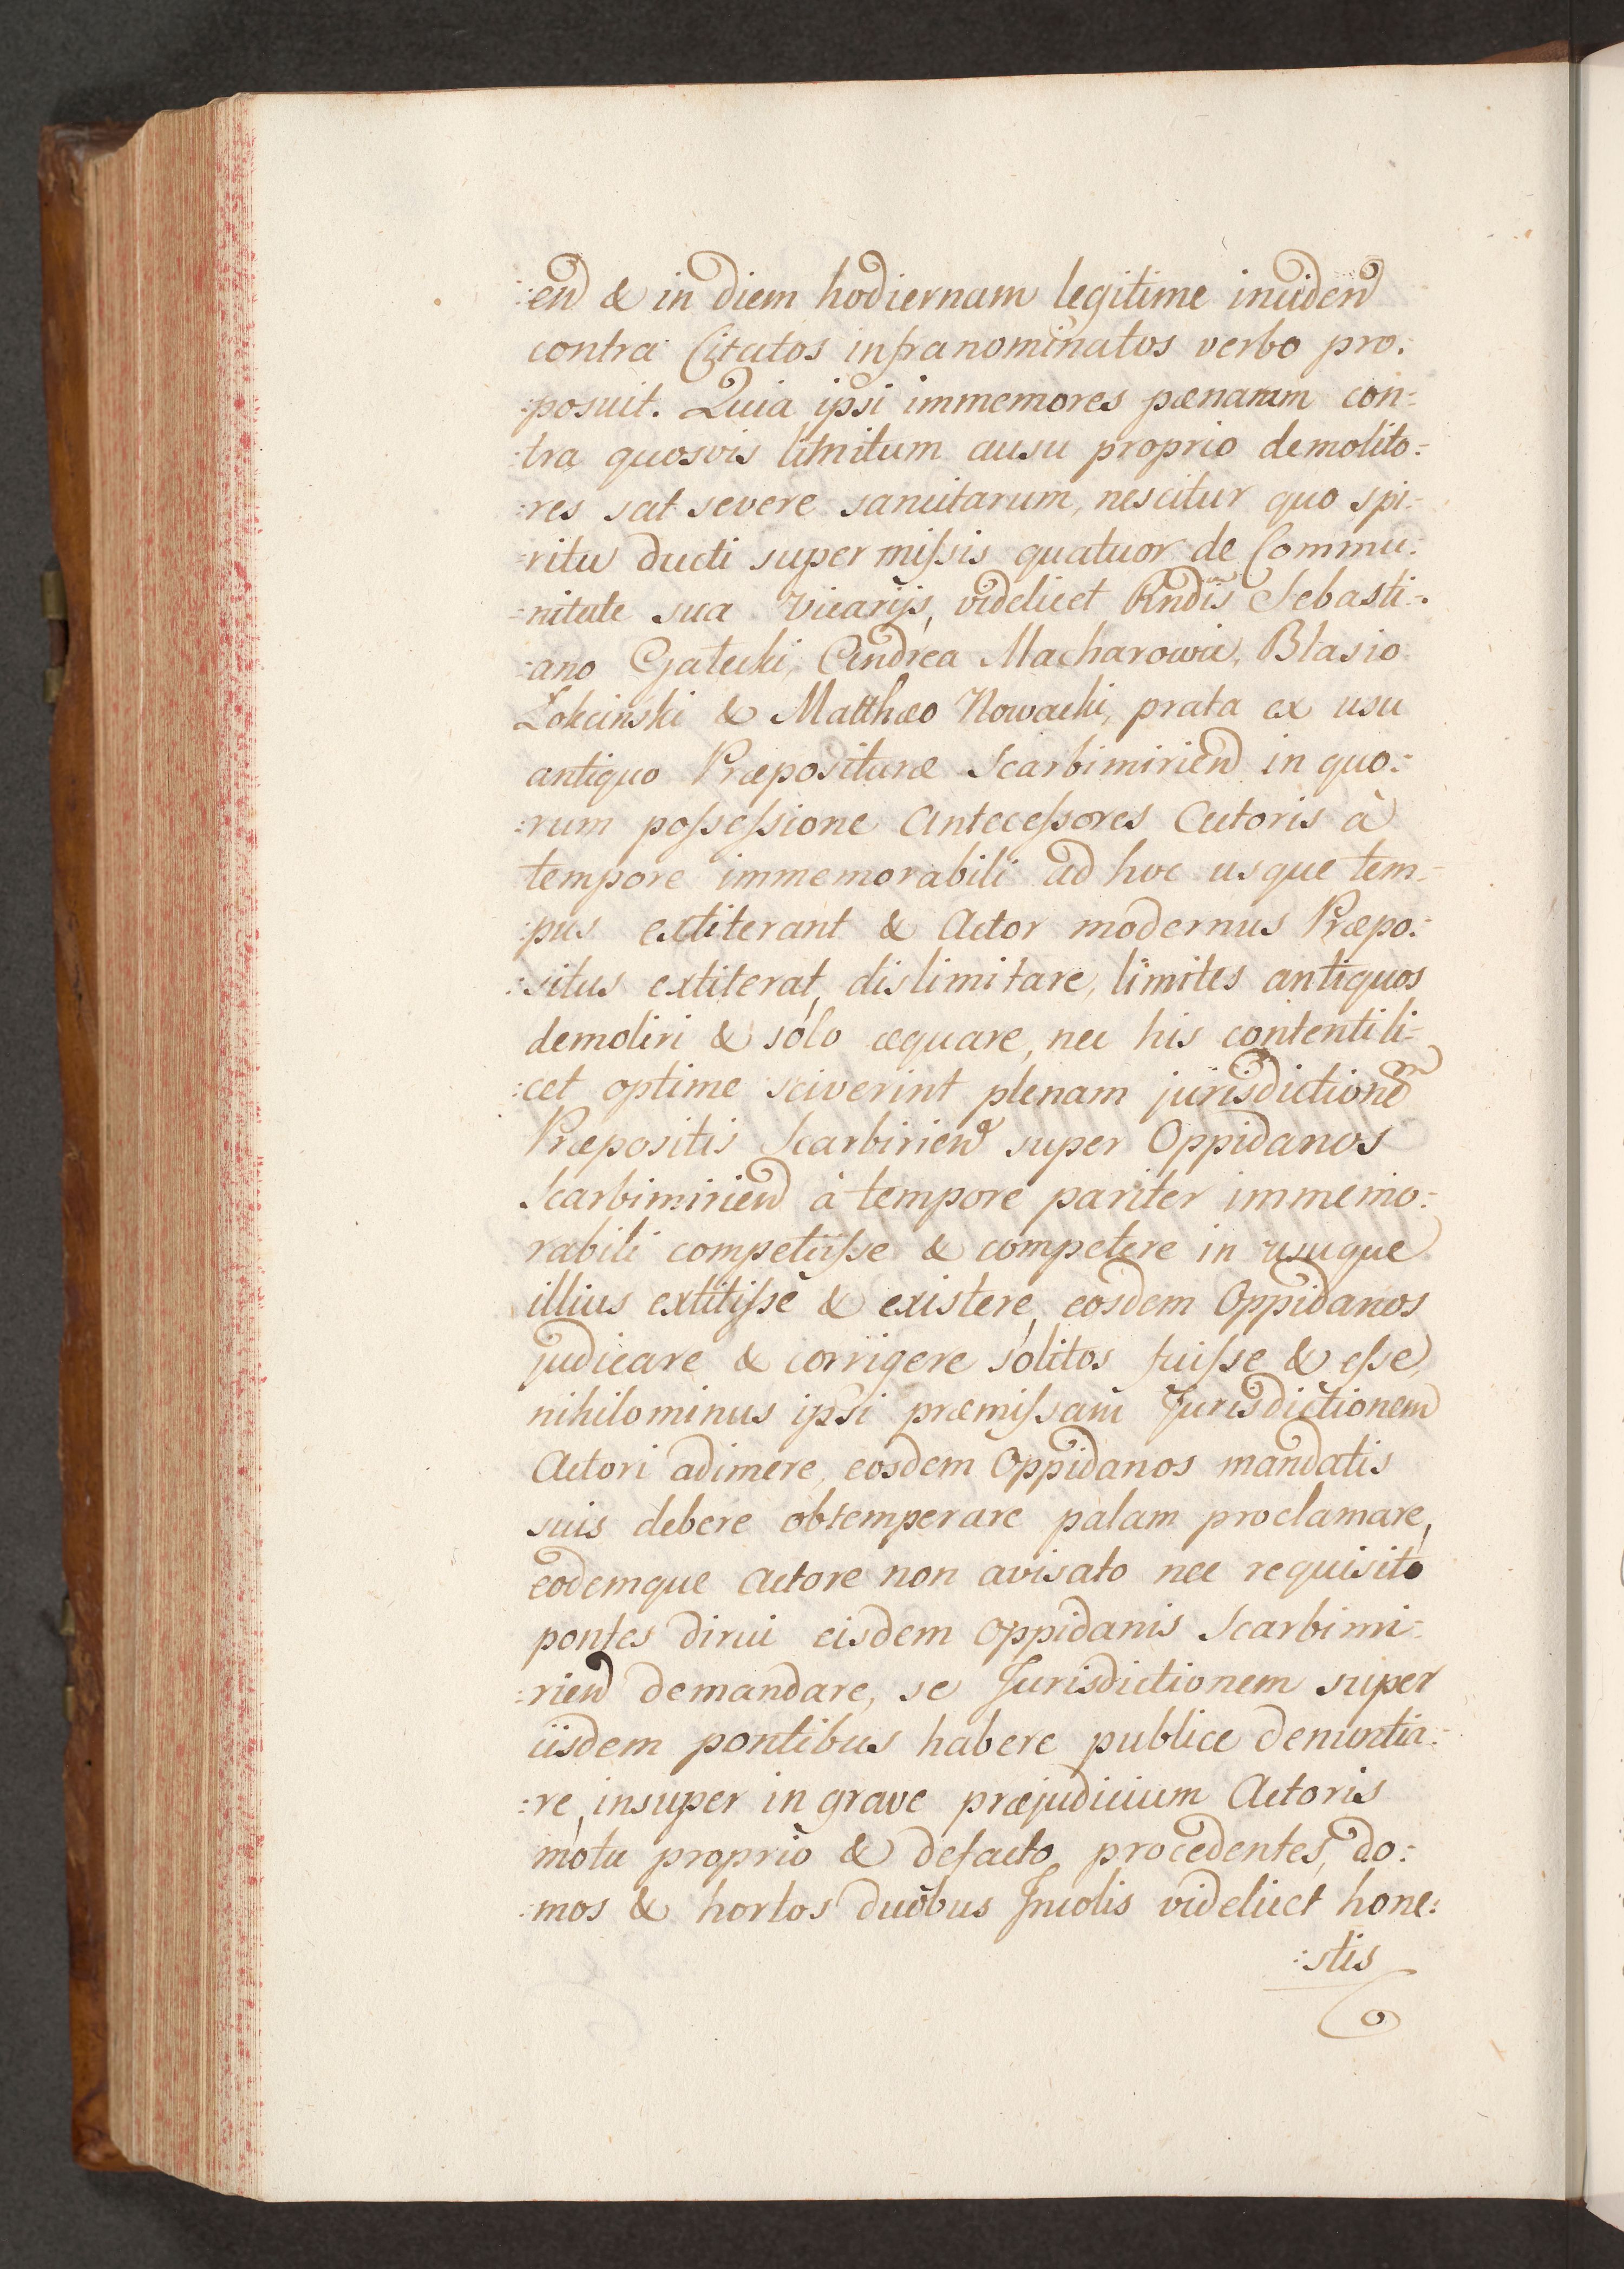 :end & in diem hodiernam legitime inciden
contra Citatos infranominatos verbo pro:
:posuit. Quia ipsi immemores pænarum con:
:tra quosvis limitum ausu proprio demolito:
:res sat severe sancitarum, nescitur quo spi:
:ritu ducti super missis quatuor de Commu:
:nitate sua Vicarijs, videlicet Rndis Sebasti:
:ano Gałecki, Andrea Macharowic, Blasio
Łokcinski & Matthæo Nowacki, prata ex usu
antiquo Præposituræ Scarbimirien in quo:
:rum possessione Antecessores Actoris à
tempore immemorabili ad hoc usque tem:
:pus extiterant & Actor modernus Præpo:
:situs extiterat, dislimitare, limites antiquos
demoliri & solo æquare, nec his contenti li:
:cet optime sciverint plenam jurisdictionem
Præpositis Scarbirien super Oppidanos
Scarbimirien à tempore pariter immemo:
rabili competiisse & competere in usuque
illius extitisse & existere, eosdem Oppidanos
judicare & corrigere solitos fuisse & esse,
nihilominus ipsi præmissam Jurisdictionem
Actori adimere, eosdem Oppidanos mandatis
suis debere obtemperare palam proclamare,
eodemque Actore non avisato nec requisito
pontes dirui eisdem Oppidanis Scarbimi:
:rien demandare, se Jurisdictionem super
iisdem pontibus habere publice denuntia:
:re, insuper in grave præjudicium Actoris
motu proprio & defacto procedentes, do:
:mos & hortos duobus Incolis videlicet hone:
:stis